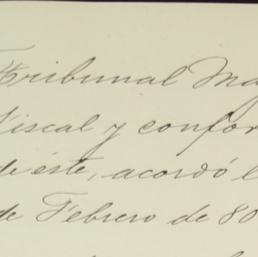 Tribunal Ma
Fiscal y confor
de éste, acordó l
de Febrero de 80